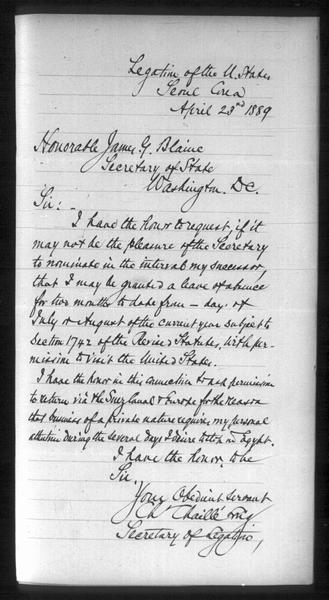 Legation of the U. States
Seoul Corea
April 23rd 1889
Honorable James G. Blaine
Secretary of State
Washington. D.C.
Sir:-
I have the honor to request, if it
may not be the pleasure of the Secretary
to nominate in the interval my successor,
that I may be granted a leave of absence
for two months to date from — day of
July or August of the current year subject to
section 1742 of the Revised Statutes, with per-
mission to visit the United States.
I have the honor in this connection to ask permission
to return via the Suez Canal & Europe for the reason
that business of a private nature requires my personal
attention during the several days I desire to stop in Egypt.
I have the honor, to be
Sir,
Your Obedient servant
Ch Chaillé Long
Secretary of Legation,